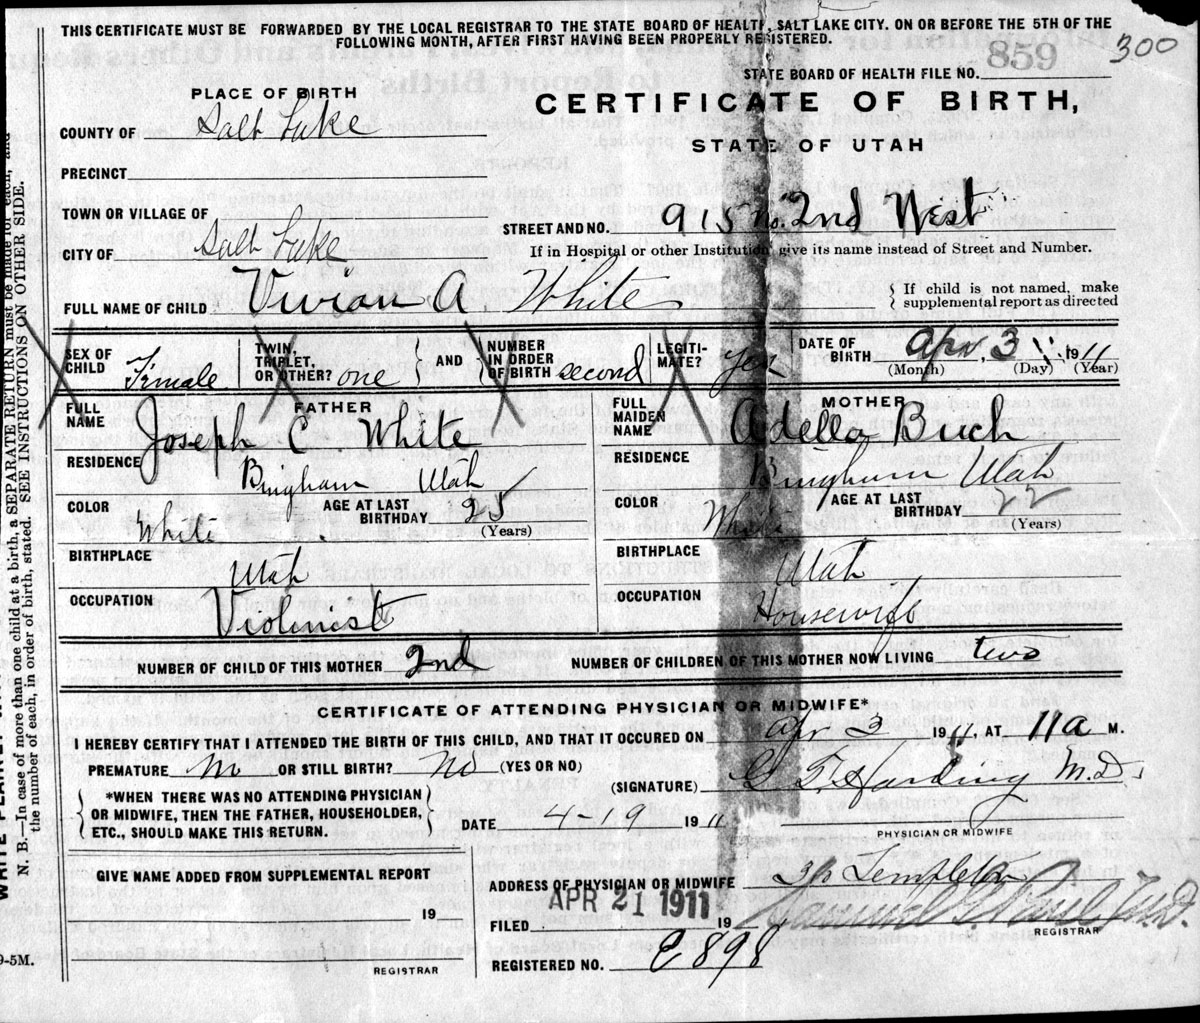 THIS CERTIFICATE MUST BE FORWARDED BY THE LOCAL REGISTRAR TO THE STATE BOARD OF HEALTH, SALT LAKE CITY. ON OR BEFORE THE 5TH OF THE
FOLLOWING MONTH, AFTER FIRST HAVING BEEN PROPERLY REGISTERED.
300
STATE BOARD OF HEALTH FILE NO. 859
PLACE OF BIRTH
CERTIFICATE OF BIRTH,
COUNTY OF Salt Lake
STATE OF UTAH
PRECINCT
TOWN OR VILLAGE OF
STREET AND NO. 915 no. 2nd West
CITY OF Salt Lake
If in Hospital or other Institution, give its name instead of Street and Number.
FULL NAME OF CHILD Vivian A. White
{ If child is not named, make
supplemental report as directed
SEX OF CHILD Female
TWIN, TRIPLET, OR OTHER? one } AND { NUMBER IN ORDER OF BIRTH second
LEGITI-MATE? yes
DATE OF BIRTH Apr. 3 1911
(Month) (Day) (Year)
FATHER
FULL NAME Joseph C White
RESIDENCE Bingham Utah
COLOR White AGE AT LAST BIRTHDAY 25 (Years)
BIRTHPLACE Utah
OCCUPATION Violinist
MOTHER
FULL MAIDEN NAME Adella Buch
RESIDENCE Bingham Utah
COLOR AGE AT LAST BIRTHDAY 22 (Years)
BIRTHPLACE Utah
OCCUPATION Housewife
NUMBER OF CHILD OF THIS MOTHER 2nd NUMBER OF CHILDREN OF THIS MOTHER NOW LIVING two
CERTIFICATE OF ATTENDING PHYSICIAN OR MIDWIFE*
I HEREBY CERTIFY THAT I ATTENDED THE BIRTH OF THIS CHILD, AND THAT IT OCCURED ON Apr 3 1911, AT 11 a M.
PREMATURE no OR STILL BIRTH? No (YES OR NO)
(SIGNATURE) G. T. Harding M.D.
{ *WHEN THERE WAS NO ATTENDING PHYSICIAN
OR MIDWIFE, THEN THE FATHER, HOUSEHOLDER,
ETC., SHOULD MAKE THIS RETURN. }
DATE 4-19 1911
PHYSICIAN OR MIDWIFE
GIVE NAME ADDED FROM SUPPLEMENTAL REPORT
ADDRESS OF PHYSICIAN OR MIDWIFE Templeton
19
FILED APR 21 1911 19
REGISTRAR
REGISTERED NO. E898
REGISTRAR
9-5M.
N. B.—In case of more than one child at a birth, a SEPARATE RETURN must be made for each, and
the number of each, in order of birth, stated. SEE INSTRUCTIONS ON OTHER SIDE.